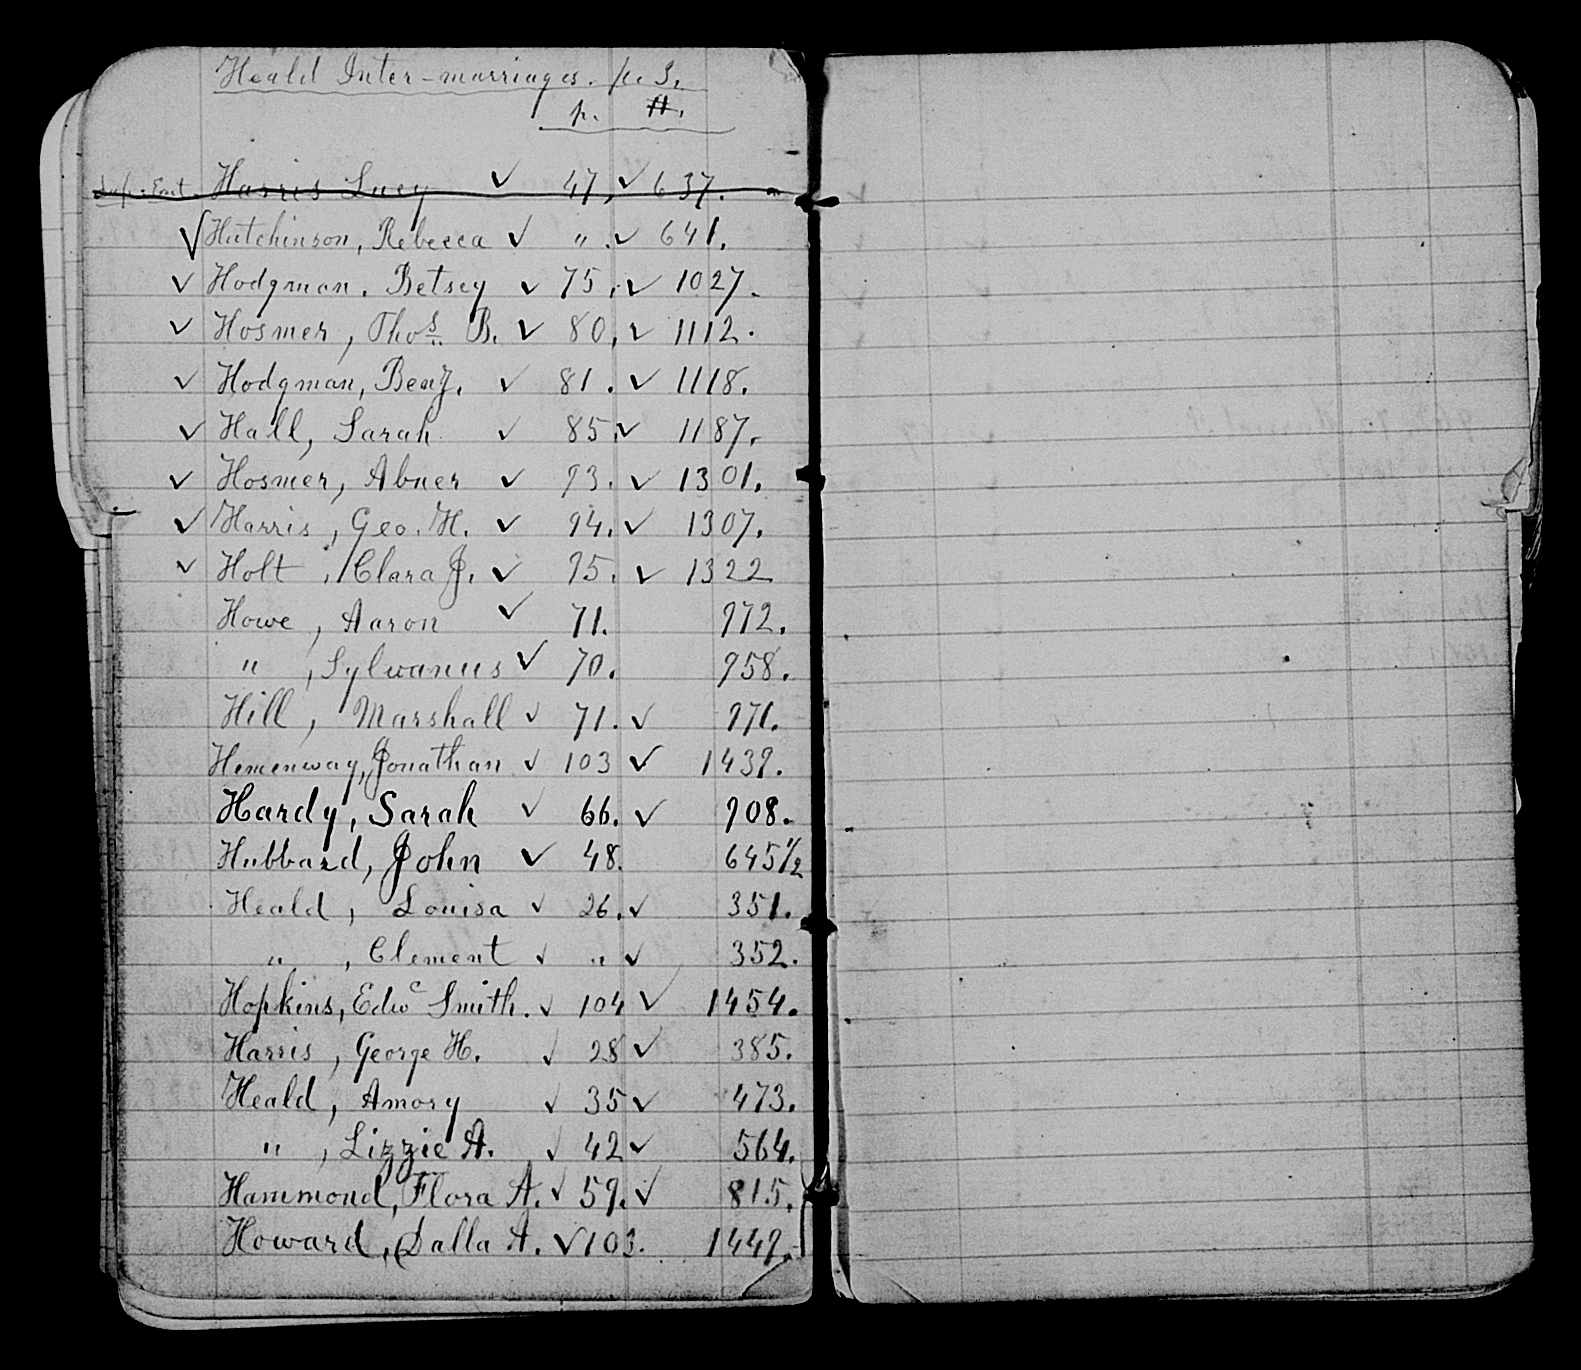 Heald Inter-marriages. p. 3.
p. #.
Harris Lucy ✓ 47, ✓ 637.
✓ Hutchinson, Rebecca ✓ " . ✓ 641.
✓ Hodgman. Betsey ✓ 75, ✓ 1027.
✓ Hosmer, Thos. B. ✓ 80, ✓ 1112.
✓ Hodgman, Benj. ✓ 81. ✓ 1118.
✓ Hall, Sarah ✓ 85. ✓ 1187.
✓ Hosmer, Abner ✓ 93. ✓ 1301.
✓ Harris, Geo. H. ✓ 94. ✓ 1307.
✓ Holt, Clara J. ✓ 95. ✓ 1322
Howe, Aaron ✓ 71. 972.
" , Sylvanus ✓ 70. 958.
Hill, Marshall ✓ 71. ✓ 971.
Hemenway, Jonathan ✓ 103 ✓ 1439.
Hardy, Sarah ✓ 66. ✓ 908.
Hubbard, John ✓ 48. 645 1/2
Heald, Louisa ✓ 26. ✓ 351.
" , Clement ✓ " ✓ 352.
Hopkins, Edwc Smith. ✓ 104 ✓ 1454.
Harris, George H. ✓ 28 ✓ 385.
Heald, Amory ✓ 35 ✓ 473.
" , Lizzie A. ✓ 42 ✓ 564.
Hammond, Flora A. ✓ 59. ✓ 815.
Howard, Dalla A. ✓ 103. 1449.